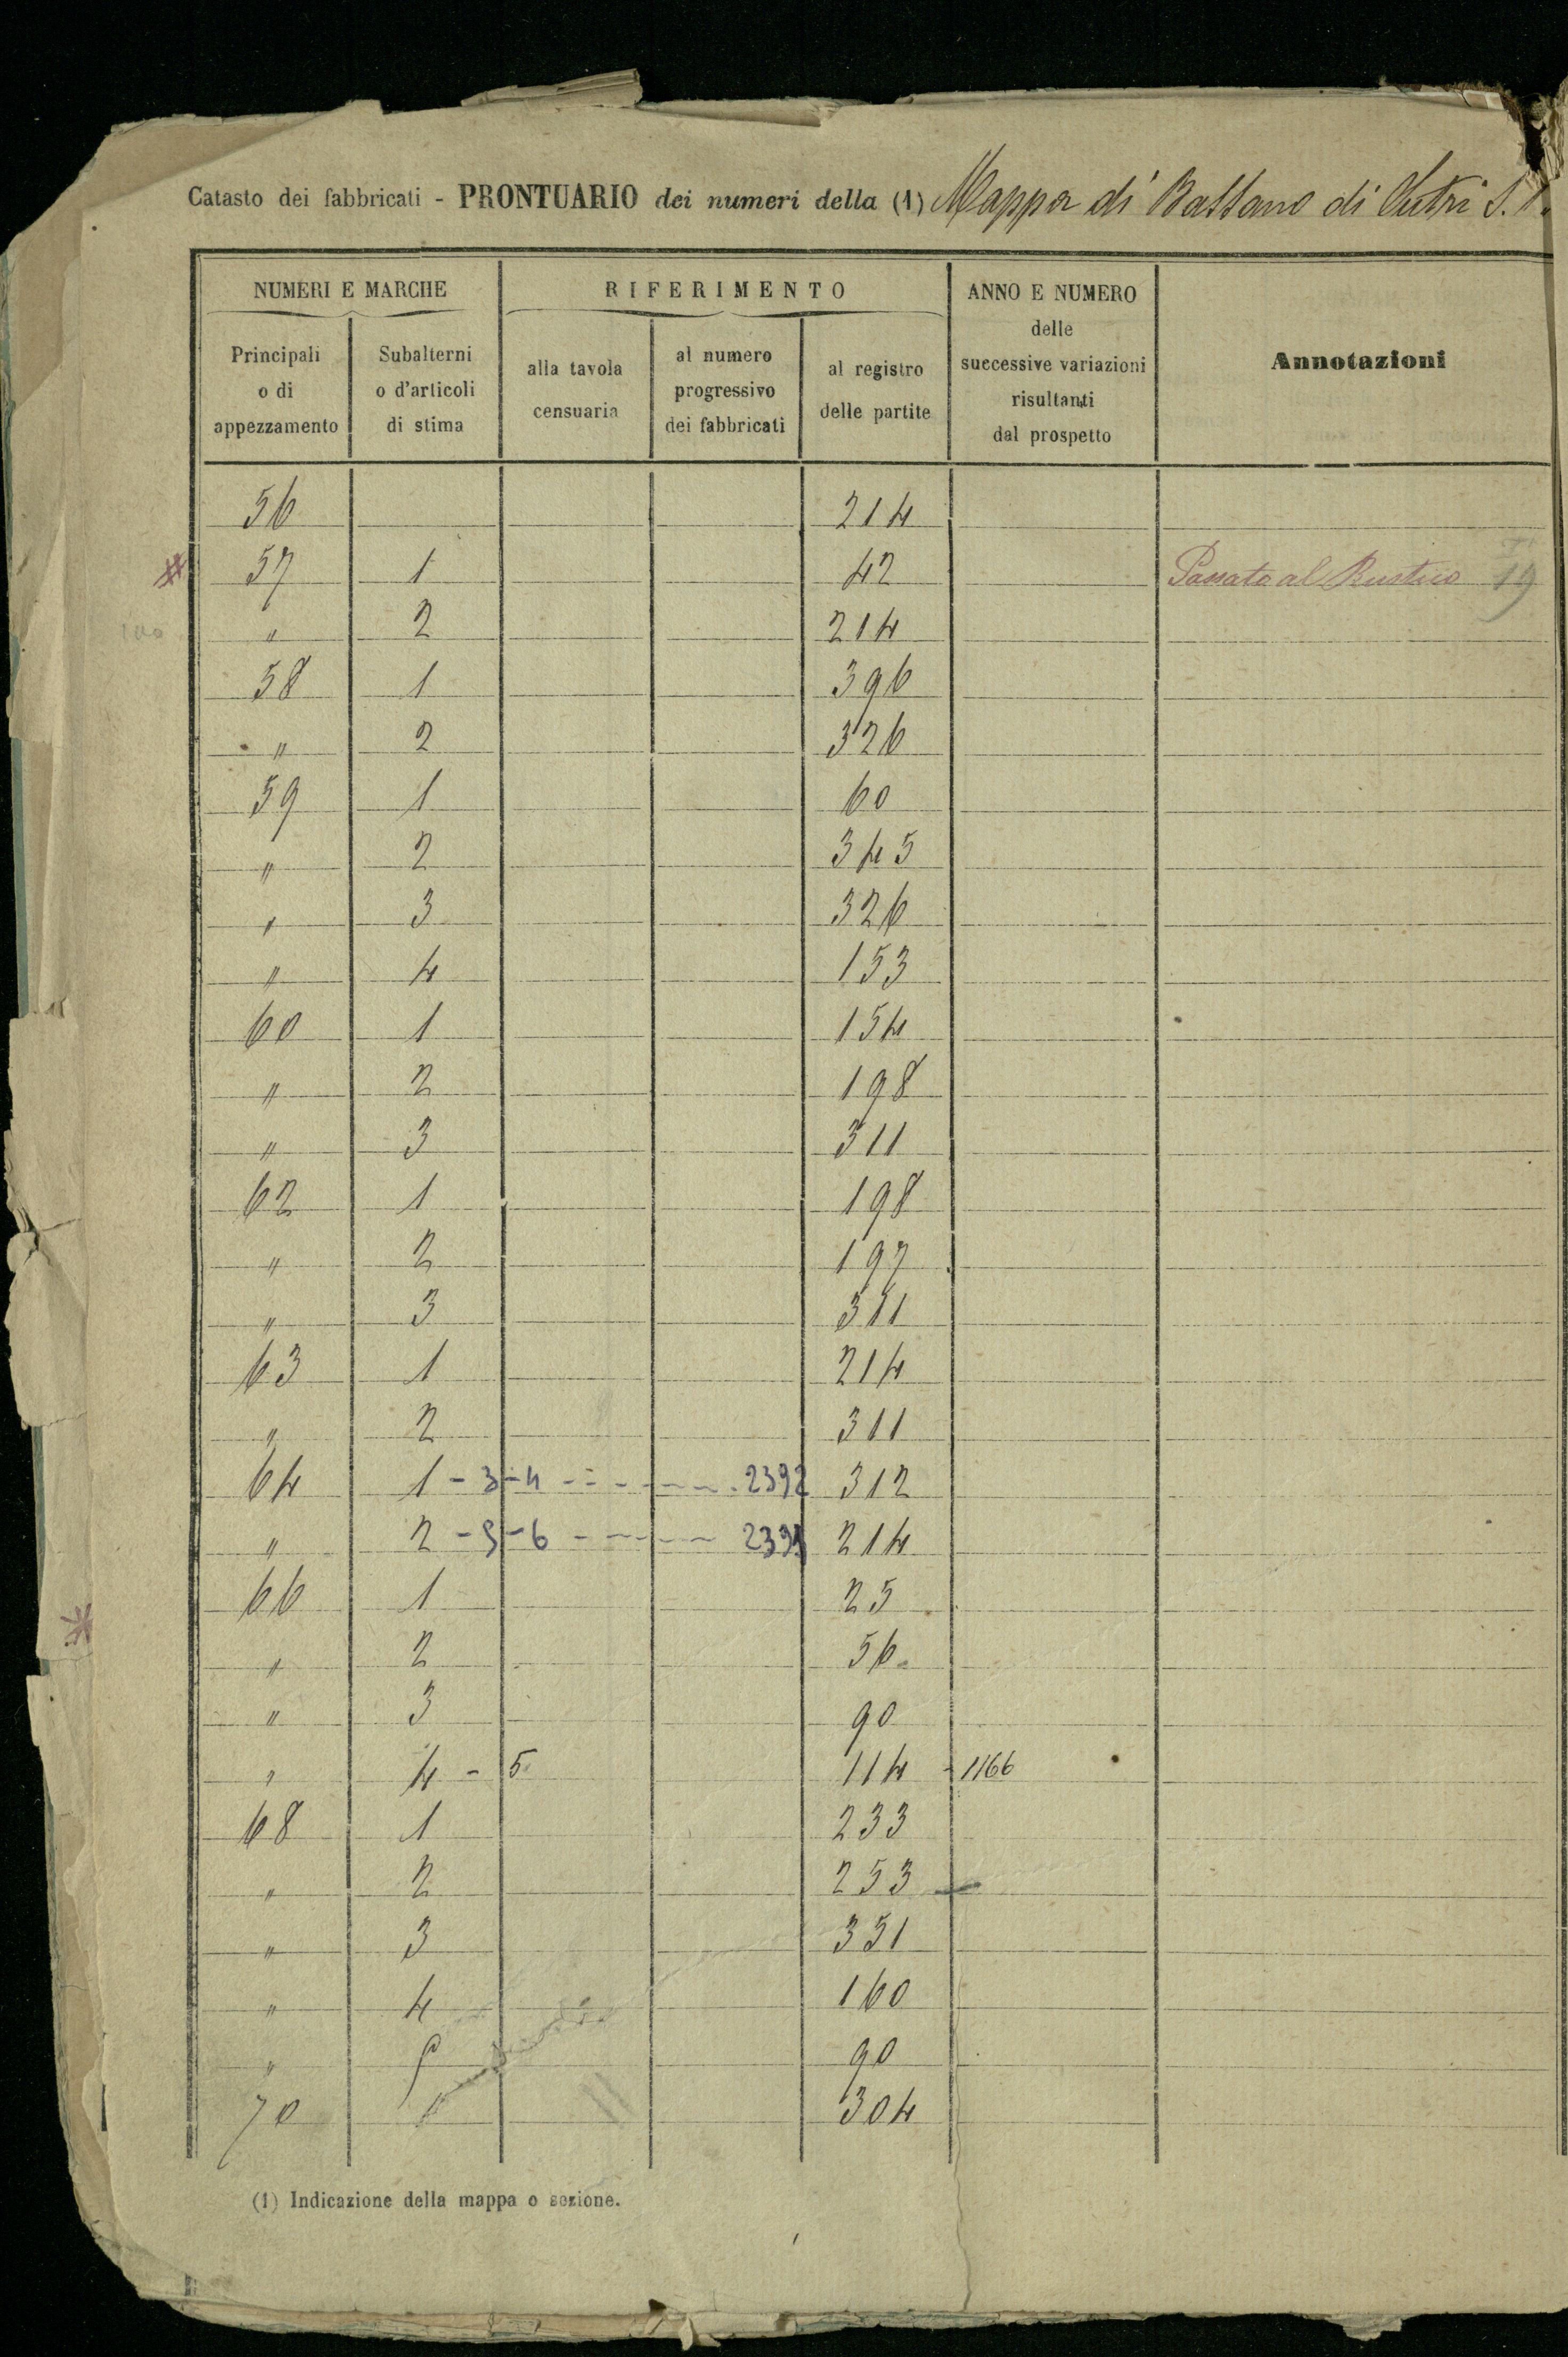 Catasto dei fabbricati - PRONTUARIO dei numeri della (1) Mappa di Bassano di Sutri S.
NUMERI E MARCHE RIFERIMENTO ANNO E NUMERO delle successive variazioni risultanti dal prospetto Annotazioni
Principali o di appezzamento Subalterni o d'articoli di stima alla tavola censuaria al numero progressivo dei fabbricati al registro delle partite
56 214
57 1 42 Passato al Rustico 19
" 2 214
58 1 396
" 2 326
59 1 60
" 2 345
" 3 326
" 4 153
60 1 154
" 2 198
" 3 311
62 1 198
" 2 197
" 3 311
63 1 214
" 2 311
64 1 - 3 - 4 - - - - - - 2392 312
" 2 - 5 - 6 - - - - - 214
66 1 25
" 2 56
" 3 90
" 4 - 5 114 - 1166
68 1 233
" 2 253
" 3 331
" 4 160
" 5 90
70 1 304
(1) Indicazione della mappa o sezione.